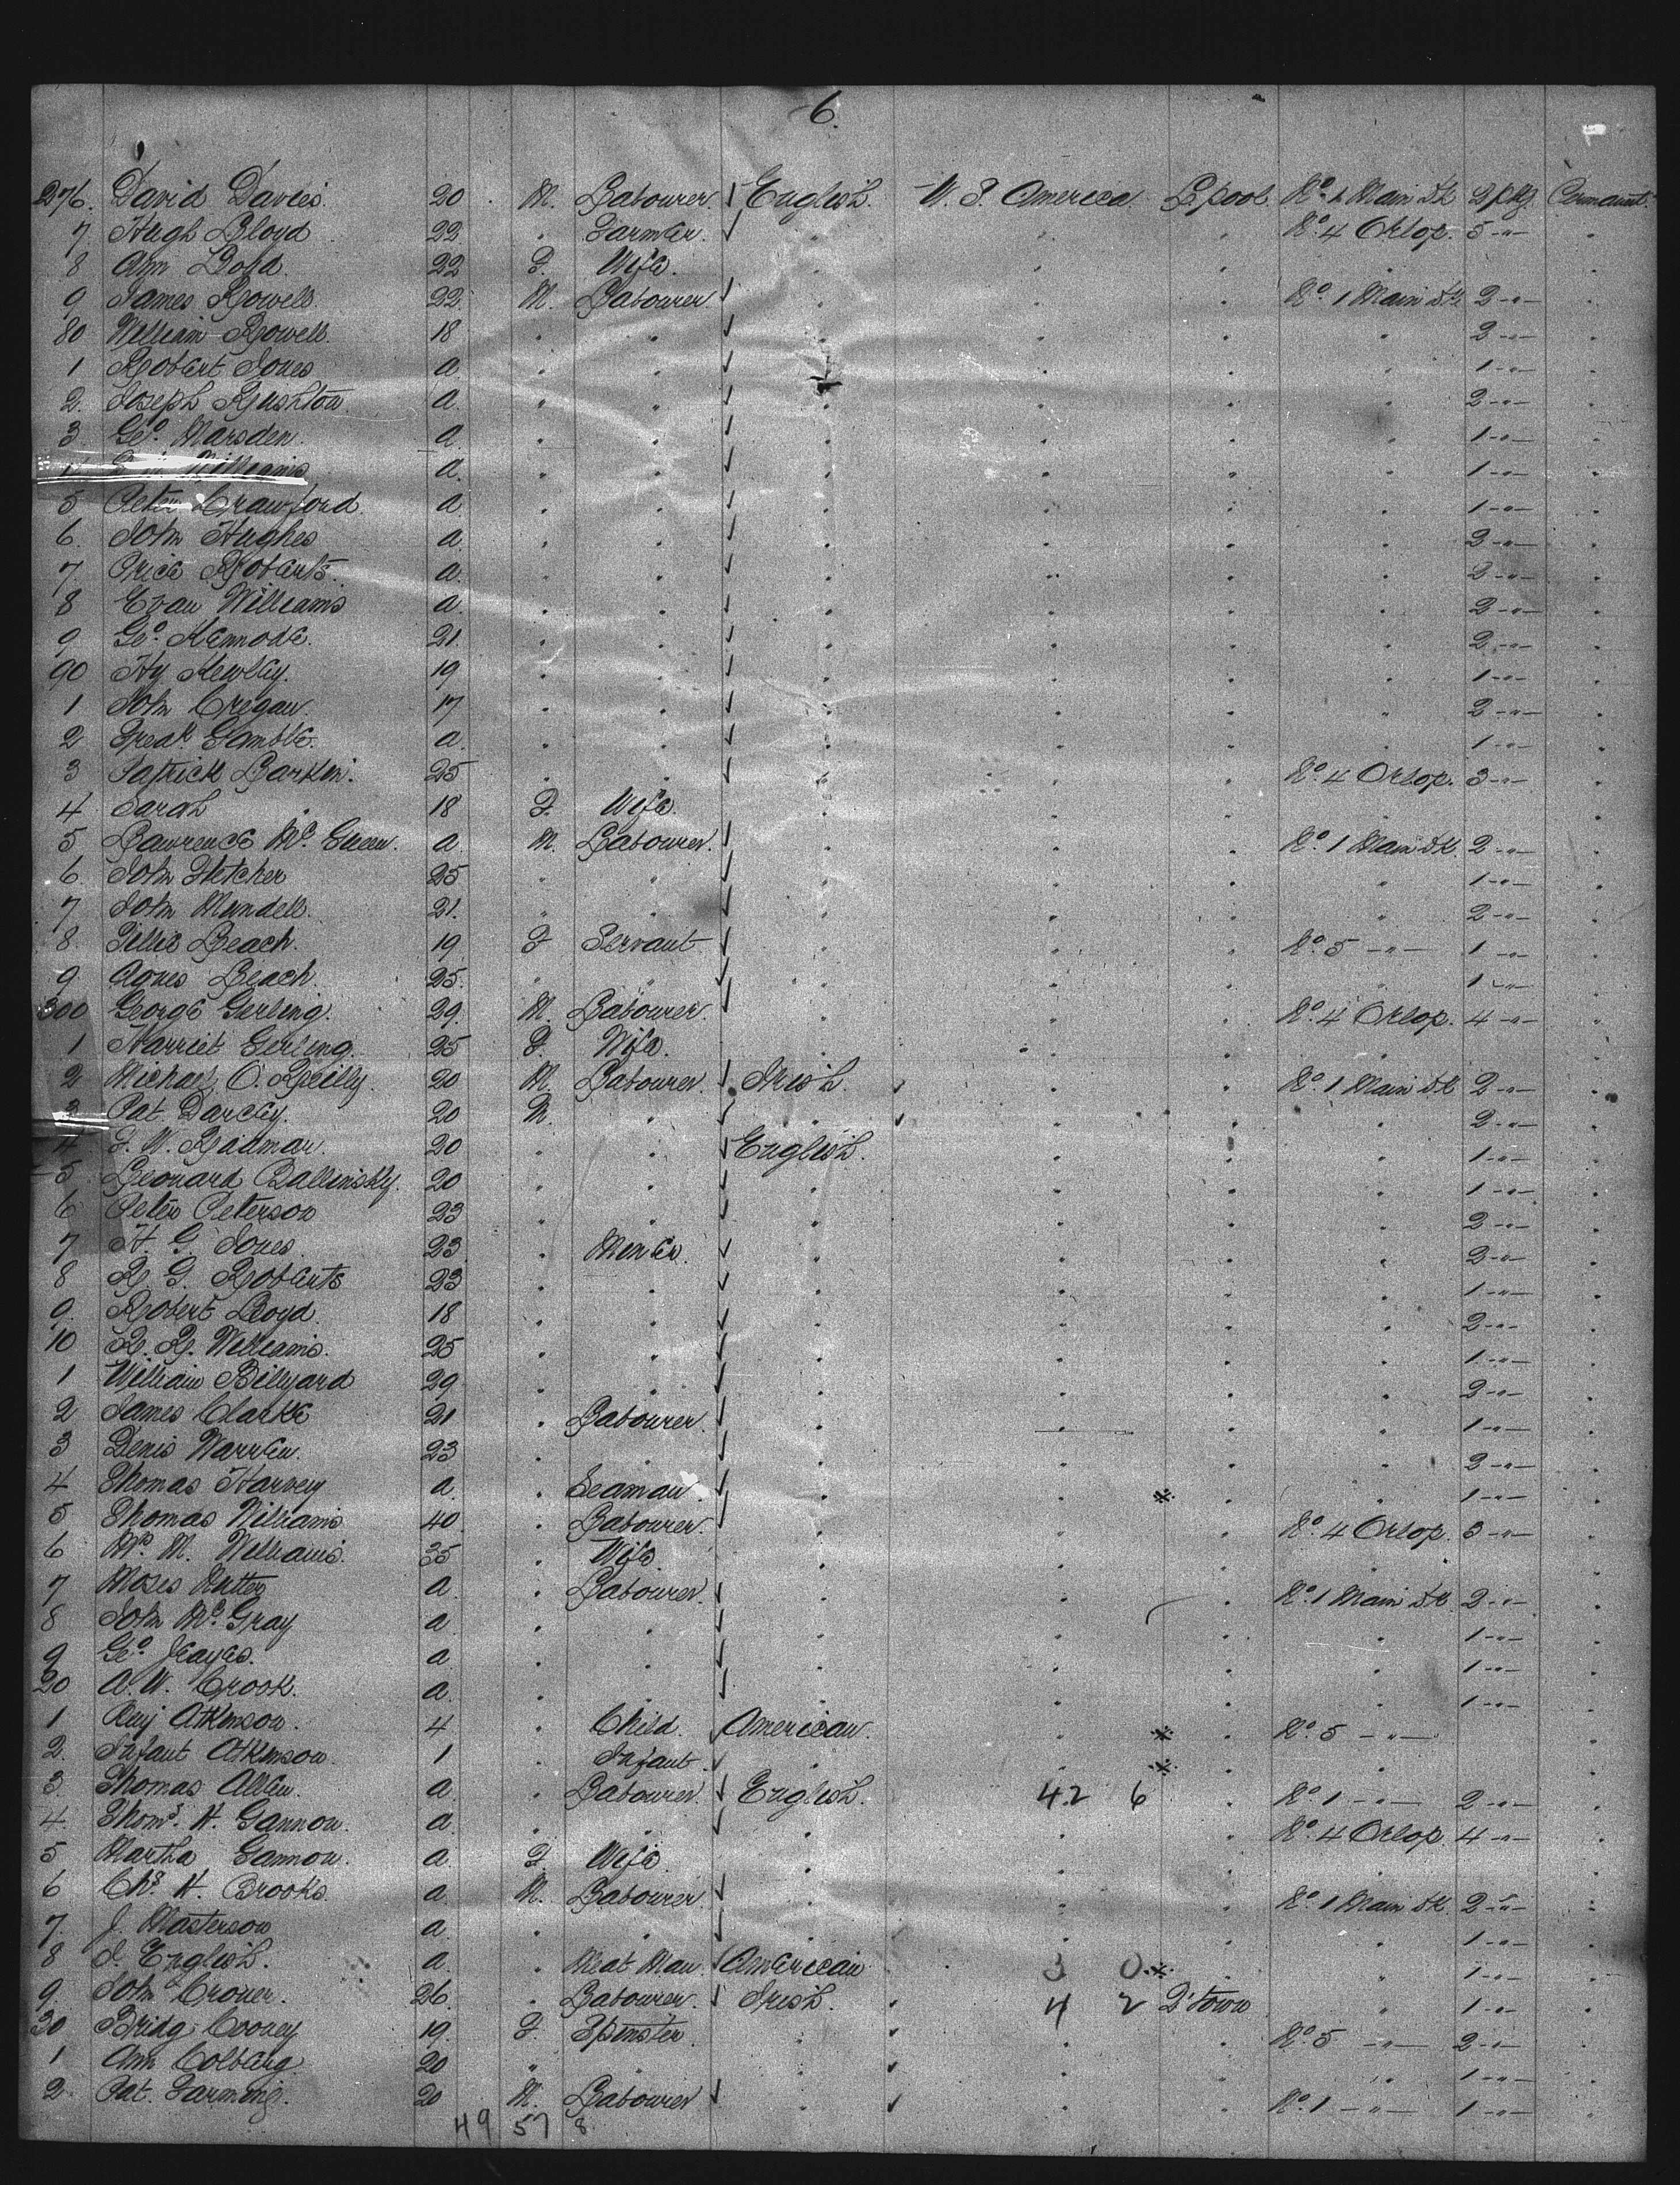 6.
276. David Davies. 20 M. Labourer. ✓ English. U. S. America. L'pool. No. 1 Main Dk 2 pkgs. Permanent.
7 Hugh Lloyd 22 " Farmer. ✓ " " " No. 4 Orlop. 5 -"- "
8 Ann Loyd. 22 F. Wife. " " " " "
9 James Powell 22 M. Labourer ✓ " " " No. 1 Main Dk. 2 -"- "
80 William Powell. 18 " " ✓ " " " " 2 -"- "
1 Robert Jones a " " ✓ " " " " 1 -"- "
2. Joseph Rushton a. " " ✓ " " " " 2 -"- "
3. Geo. Marsden. a " " ✓ " " " " 1 -"- "
Williams a. " " ✓ " " " " 1 -"- "
5 Peter Crawford. a. " " ✓ " " " " 1 -"- "
6. John Hughes a. " " ✓ " " " " 2 -"- "
7. Price Roberts. a. " " ✓ " " " " 2 -"- "
8 Evan Williams a. " " ✓ " " " " 2 -"- "
9 Geo. Kennode. 21. " " ✓ " " " " 2 -"- "
90 Hy Kewley. 19 " " ✓ " " " " 1 -"- "
1 John Cregan. 17 " " ✓ " " " " 2 -"- "
2 Fredk. Gamble. a. " " ✓ " " " " 1 -"- "
3 Patrick Larkin. 25 " " ✓ " " " No. 4 Orlop. 3 -"- "
4 Sarah " 18 F. Wife. " " " " "
5 Lawrence Mc. Green. a. M. Labourer. ✓ " " " No. 1 Main Dk. 2 -"- "
6. John Fletcher 25 " " ✓ " " " " 1 -"- "
7 John Mundell. 21. " " ✓ " " " " 2 -"- "
8. Tillie Beach. 19 F Servant ✓ " " " No. 5 -"- 1 -"- "
9. Agnes Beach. 25. " " ✓ " " " " 1 -"- "
300 George Gerling. 29. M. Labourer. ✓ " " " No. 4 Orlop. 4 -"- "
1 Harriet Gerling. 25 F. Wife. " " " " "
2 Michael O. Reilly. 20 M. Labourer. ✓ Irish. " " No. 1 Main Dk 2 -"- "
3 Pat Darcey. 20 M. " ✓ " " " " 2 -"- "
4 F. W. Ridman. 20 " " ✓ English. " " " 1 -"- "
5 Leonard Ballinsky. 20 " " ✓ " " " " 1 -"- "
6 Peter Peterson 23 " " ✓ " " " " 2 -"- "
7 H. G. Jones. 23 " Miner. ✓ " " " " 2 -"- "
8 R. G. Roberts 23 " " ✓ " " " " 1 -"- "
9. Robert Lloyd. 18 " " ✓ " " " " 2 -"- "
10 R. R. Williams. 25 " " ✓ " " " " 1 -"- "
1 William Billyard 29 " " ✓ " " " " 2 -"- "
2 James Clarke 21 " Labourer. ✓ " " " " 1 -"- "
3 Denis Warren. 23 " " ✓ " " " " 2 -"- "
4 Thomas Harvey a. " Seaman. ✓ " " " " 1 -"- "
5 Thomas Williams 40 " Labourer. ✓ " " " No. 4 Orlop. 3 -"- "
6 Mrs. M. Williams. 35 " Wife " " " " "
7 Moses a. " Labourer. ✓ " " " No. 1 Main Dk 2 -"- "
8 John Mc. Gray a. " " ✓ " " " " 1 -"- "
9 Geo. a " " ✓ " " " " 1 -"- "
20 A. W. Crook. a. " " ✓ " " " " 1 -"- "
1 Benj Atkinson. 4 " Child. ✓ American. " " No. 5 -"- "
2. Infant Atkinson. 1 " Infant. ✓ " " " " "
3. Thomas Allen. a. " Labourer. ✓ English. 42 6 " No. 1 -"- 2 -"- "
4. Thoms. H. Gannon. a. " " ✓ " " " No. 4 Orlop 4 -"- "
5 Martha Gannon. a. F. Wife. " " " " "
6 Chs. H. Brooks. a. M. Labourer. ✓ " " " No. 1 Main Dk. 2 -"- "
7. J. Masterson a. " " ✓ " " " " 1 -"- "
8 J. English. a. " Meat Man. ✓ American 3 0 " " 1 -"- "
9. John Croner. 26. " Labourer. ✓ Irish. 4 2 Q'town " 1 -"- "
30 Bridg Cooney 19. F. Spinster. " " " No. 5 -"- 2 -"- "
1 Ann 20 " " " " " " 1 -"- "
2. Pat. 20 M. Labourer ✓ " " " No. 1 -"- 1 -"- "
49 57 8